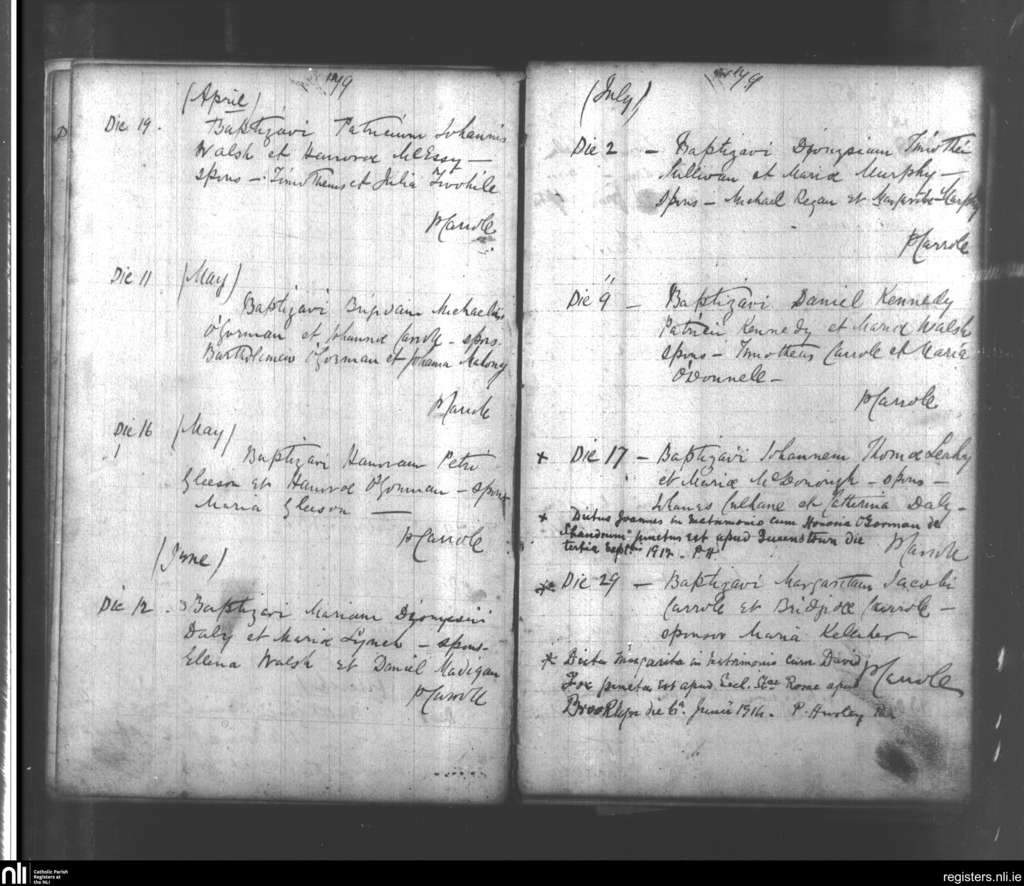 1879
(April)
Die 19. Baptizavi Patricium Johannis
Walsh et Hanorae McEssy —
spons — Timotheus et Julia Twohile
PCarrole
Die 11 (May)
Baptizavi Brigidam Michaelis
O'Gorman et Johanna Carrole - spons.
Bartholomew O'Gorman et Johanna Mahony
PCarrole
Die 16 (May)
Baptizavi Hanoram Petri
Gleeson et Hanorae O'Gorman - spons
Maria Gleeson —
PCarrole
(June)
Die 12. Baptizavi Mariam Dionysii
Daly et Mariae Lynch - spons-
Ellena Walsh et Daniel Madigan
PCarrole
1879
(July)
Die 2 — Baptizavi Dionysium Timothei
Sullivan et Mariae Murphy —
Spons — Michael Regan et Margarita Murphy
PCarrole
Die 9 — Baptizavi Daniel Kennedy
Patricii Kennedy et Mariae Walsh
Spons — Timotheus Carrole et Maria
O'Donnele —
PCarrole
x Die 17 — Baptizavi Johannem Thomae Leahy
et Mariae McDonough - spons -
Johanes Culhane et Catherina Daly -
x Dictus Joannes in matrimonio cum Honoria O'Gorman de
Shandrum junctus est apud Queenstown die
tertia Septbris 1912. P.H
PCarrole
x Die 29 — Baptizavi Margaritam Jacobi
Carrole et Bridgidae Carrole —
sponsor Maria Kelleher -
x Dicta Margarita in matrimonio cum David
Fox junctus est apud Eccl. Stae Rome apud
Brooklyn die 6a. Junii 1914. P. Hurley
PCarrole
nli
Catholic Parish
Registers at
the NLI
registers.nli.ie